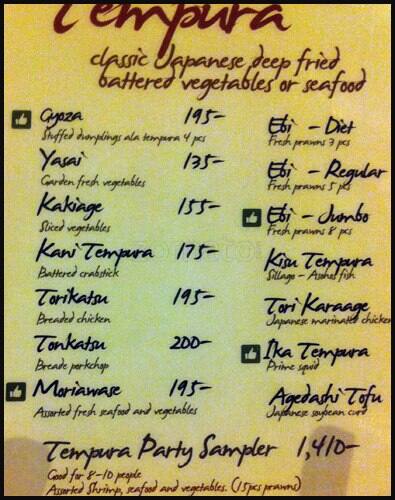 Tempura
classic Japanese deep fried
battered vegetables or seafood
Gyoza 195-
Stuffed dumplings ala tempura 4 pcs
Yasai 135-
Garden fresh vegetables
Kakiage 155-
Sliced vegetables
Kani Tempura 175-
Battered crabstick
Torikatsu 195-
Breaded chicken
Tonkatsu 200-
Breade porkchop
Moriawase 195-
Assorted fresh seafood and vegetables
Ebi - Diet
Fresh prawns 3 pcs
Ebi - Regular
Fresh prawns 5 pcs
Ebi - Jumbo
Fresh prawns 8 pcs
Kisu Tempura
Sillago - Asohos fish
Tori Karaage
Japanese marinated chicken
Ika Tempura
Prime squid
Agedashi Tofu
Japanese soybean curd
Tempura Party Sampler 1,410-
Good for 8-10 people
Assorted Shrimp, seafood and vegetables. (15pcs prawns)